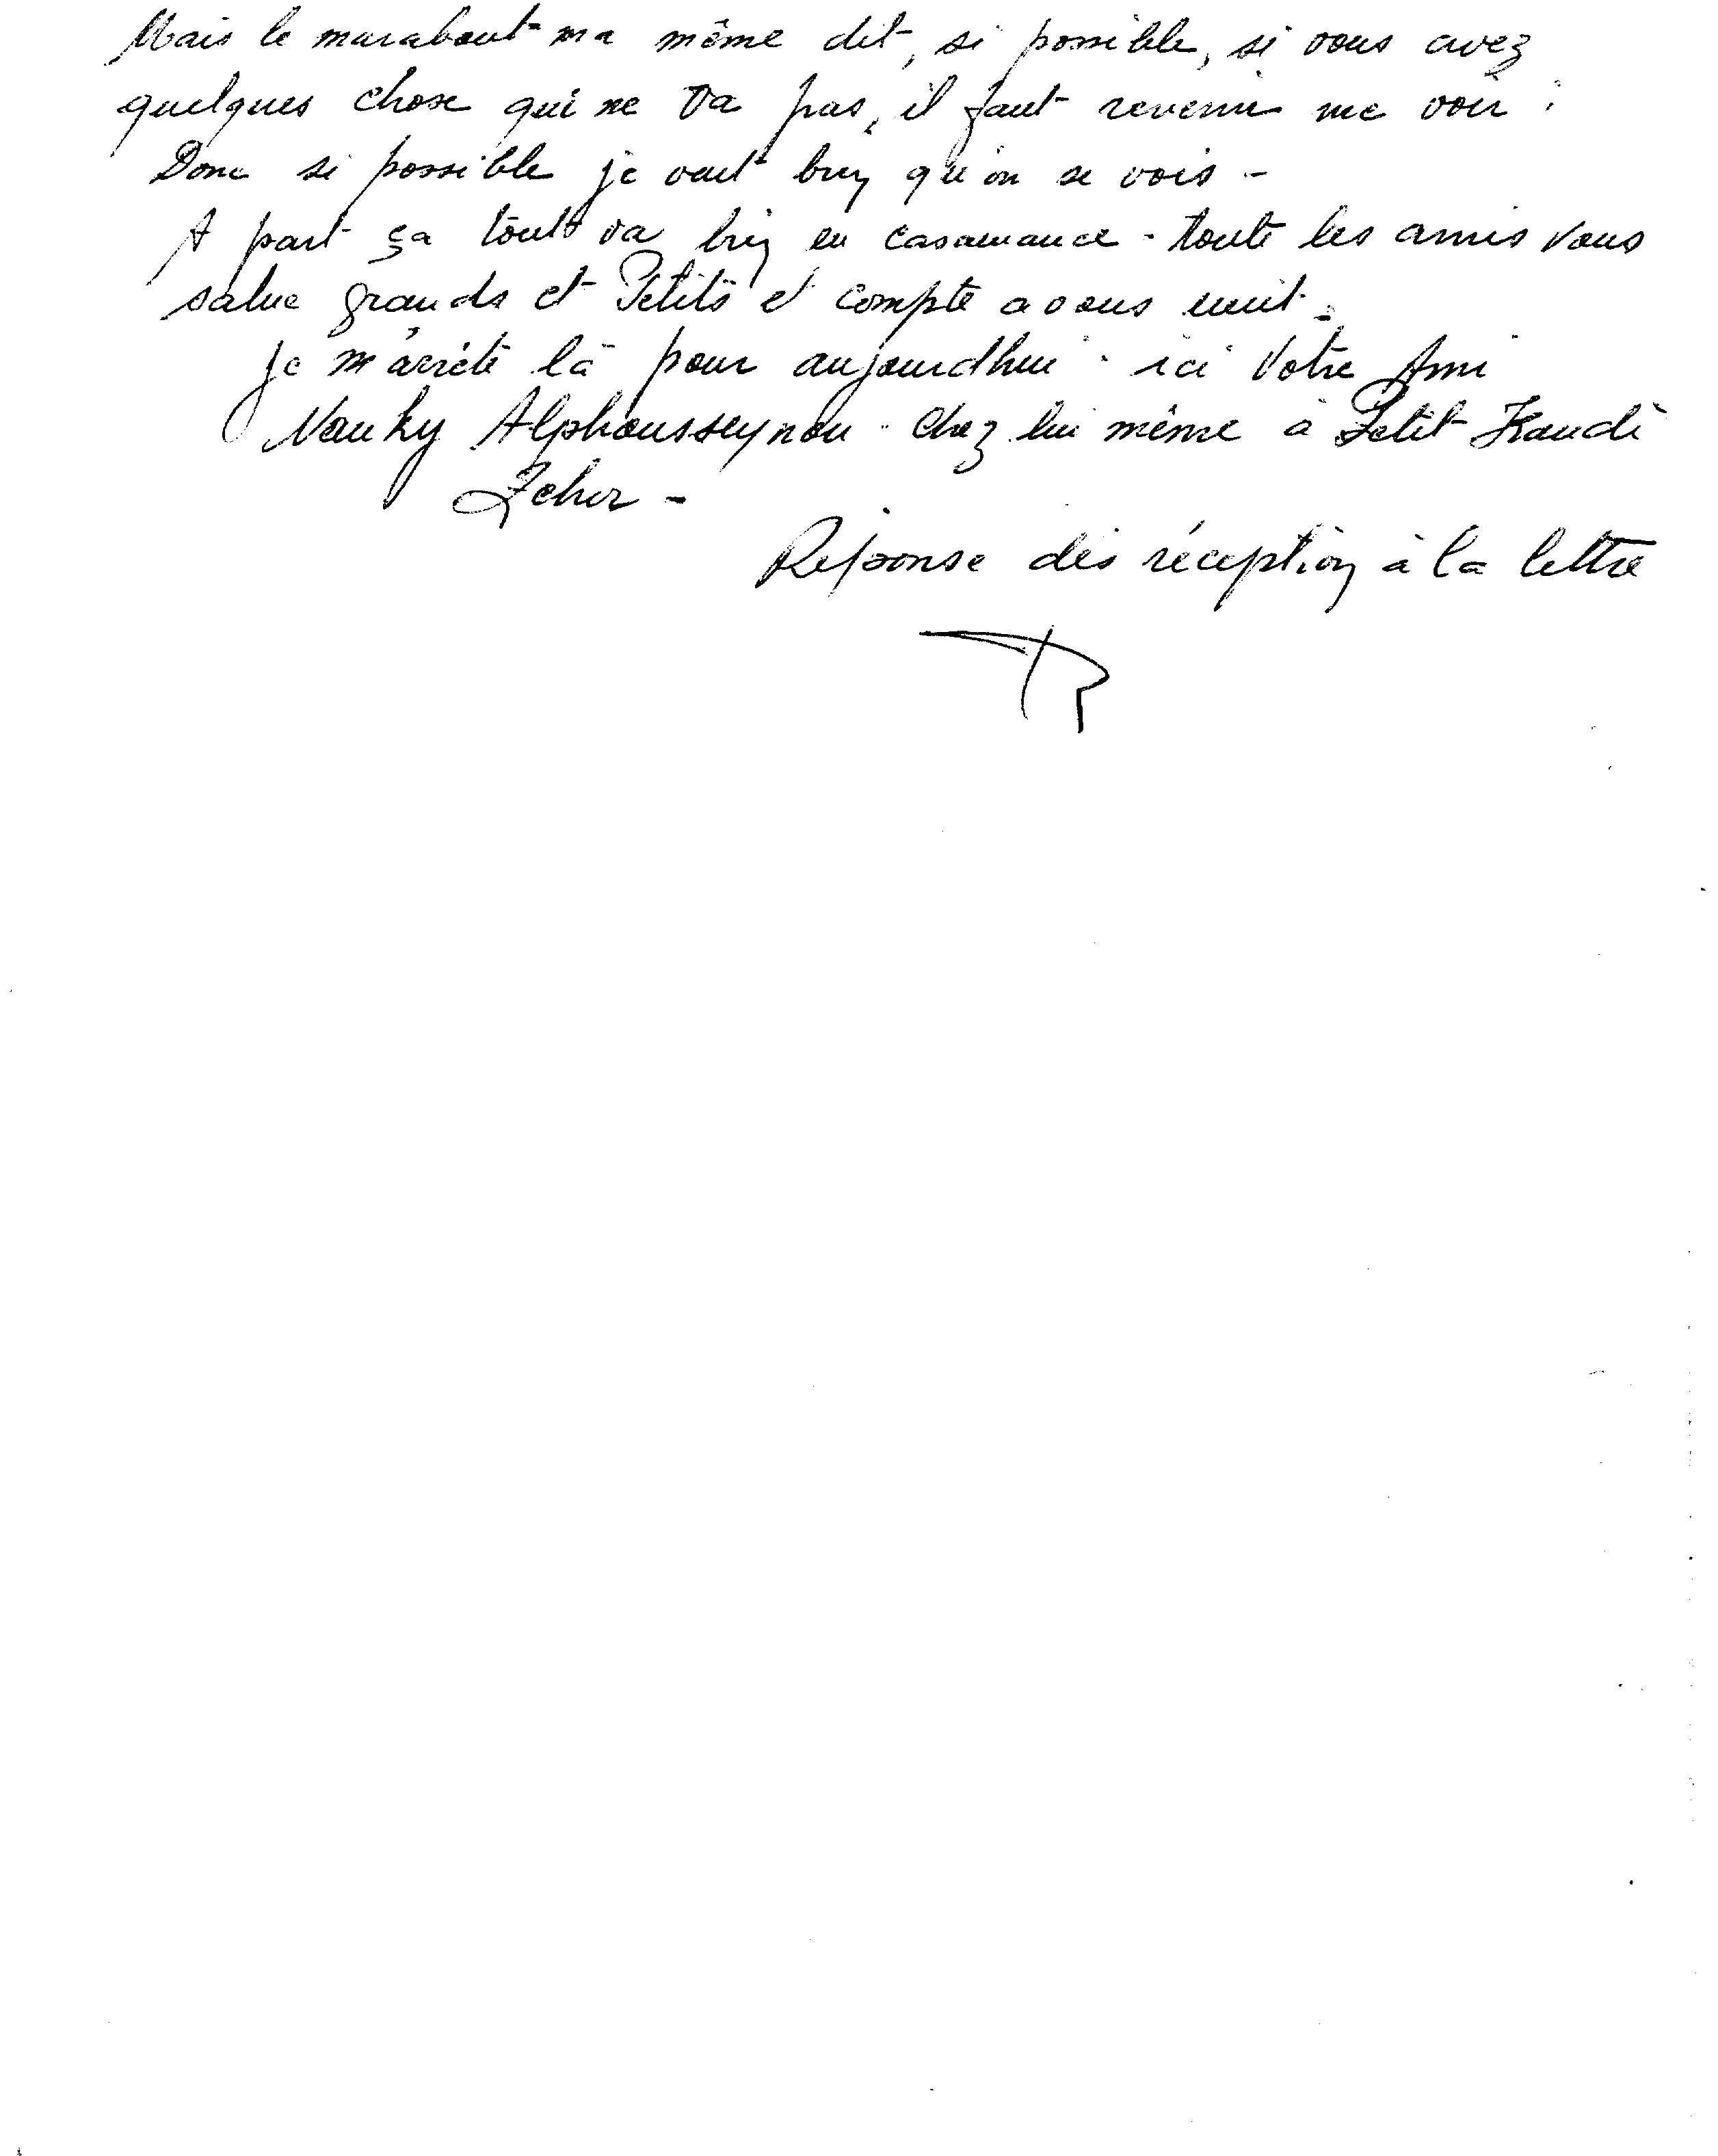 Mais le marabout ma même dit, si possible, si vous avez
quelques chose qui ne va pas, il faut revenir me voir.
Donc si possible je veut bien qu'on se vois -
A part ça tout va bien en casamance - toute les amis vous
salue grands et Petits et compte a vous
je m'arrête là pour aujourdhui. ici Votre Ami
Alphousseynou - chez lui même à Petit Kandé
Réponse dès réception à la lettre